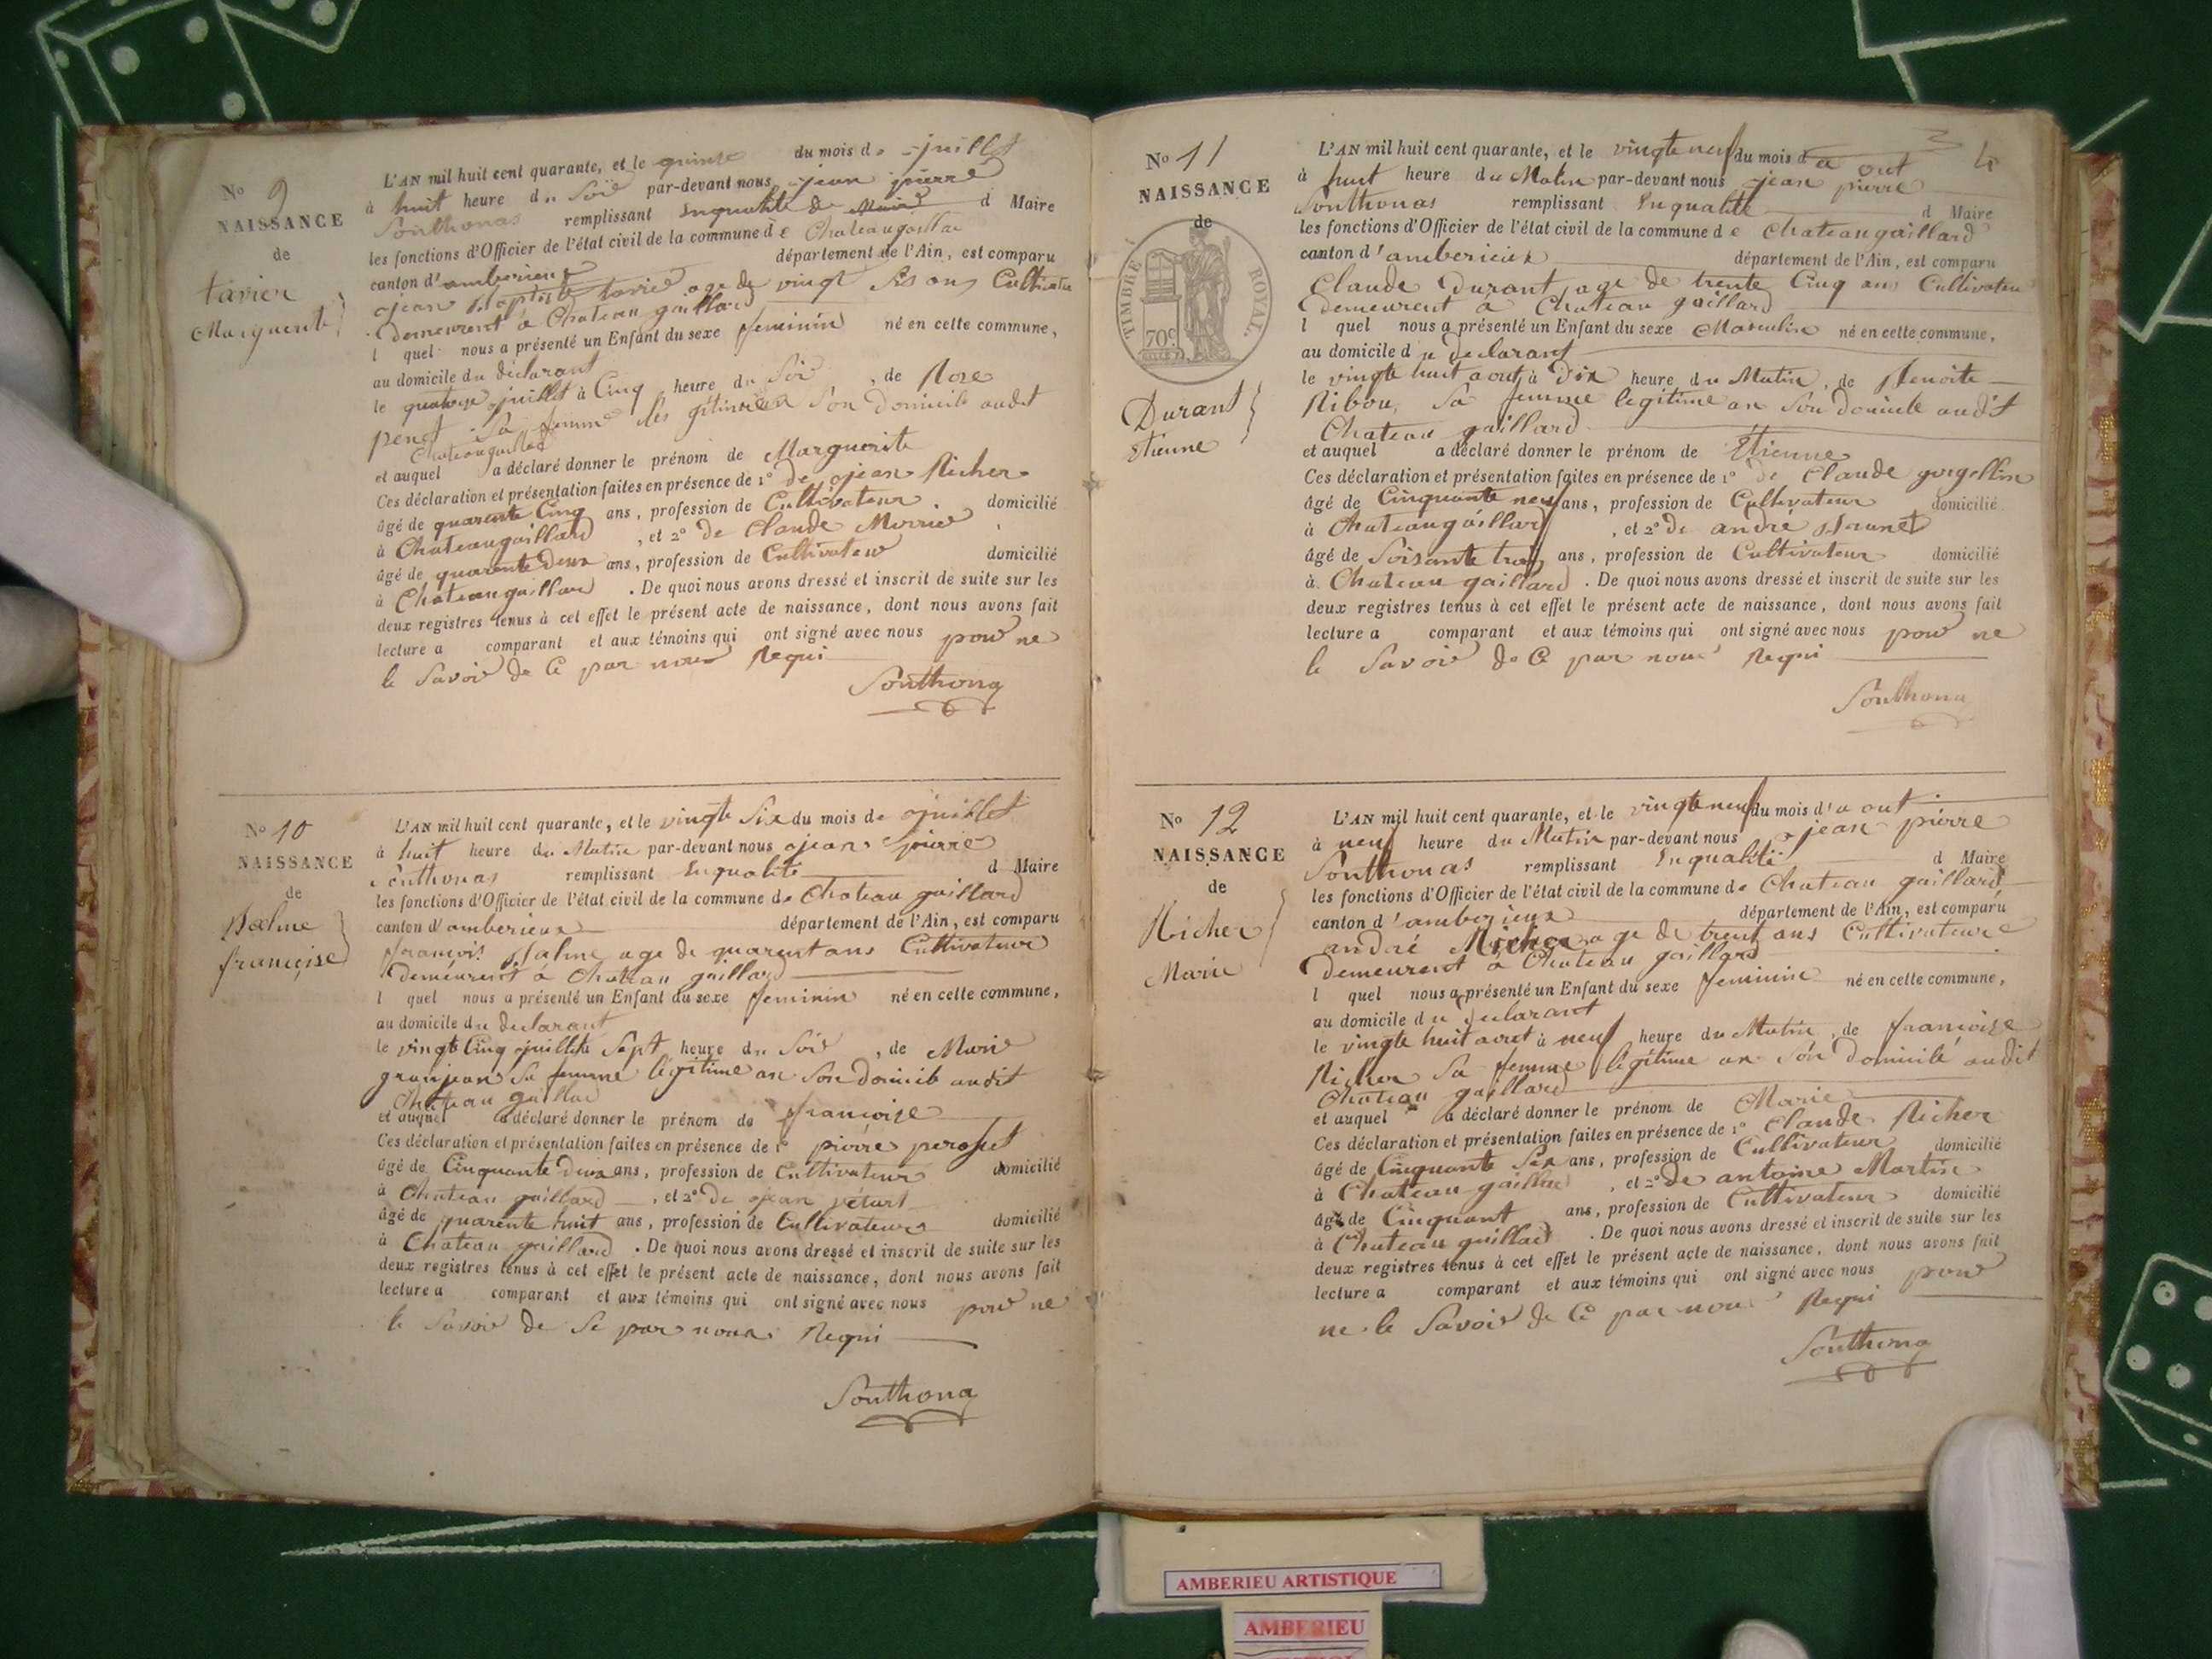 No 9
NAISSANCE
de
tavier
Marguerite
L'AN mil huit cent quarante, et le quinze du mois de juillet
à huit heure du Soir par-devant nous jean pierre
Sonthonas remplissant Enqualité de Maire d Maire
les fonctions d'Officier de l'état civil de la commune de Chateaugaillar
canton d'amberieux département de l'Ain, est comparu
jean Baptiste tavier age de vingt Six ans Cultivateur
Demeurent a Chateau gaillard
l quel nous a présenté un Enfant du sexe feminin né en cette commune,
au domicile du déclarant
le quatorze juillet à Cinq heure du Soir, de Rose
penet Sa femme les gétimes an Son Domicile audit
Chateaugaillad
et auquel a déclaré donner le prénom de Marguerite
Ces déclaration et présentation faites en présence de 1° de jean Richer
âgé de quarente Cinq ans, profession de Cultivateur domicilié
à Chateaugaillard, et 2° de Claude
âgé de quarente Deux ans, profession de Cultivateur domicilié
à Chateaugaillard. De quoi nous avons dressé et inscrit de suite sur les
deux registres tenus à cet effet le présent acte de naissance, dont nous avons fait
lecture a comparant et aux témoins qui ont signé avec nous pour ne
le Savoir de Ce par nous Requi
Sonthona
No 10
NAISSANCE
de
Balme
françoise
L'AN mil huit cent quarante, et le vingte Six du mois de juillet
à huit heure du Matin par-devant nous jean pierre
Sonthonas remplissant Enqualité d Maire
les fonctions d'Officier de l'état civil de la commune de Chateau gaillard
canton d'amberieux département de l'Ain, est comparu
francois Balme age de quarent ans Cultivateur
Demeurent a Chateau gaillard
l quel nous a présenté un Enfant du sexe feminin né en cette commune,
au domicile du declarant
le vingte Cinq juillet à Sept heure du Soir, de Marie
granjean Sa femme légitime an Son Domicile audit
Chateau gaillad
et auquel a déclaré donner le prénom de françoise
Ces déclaration et présentation faites en présence de 1° pierre
âgé de Cinquante Deux ans, profession de Cultivateur domicilié
à Chateau gaillard, et 2° de jean
âgé de quarente huit ans, profession de Cultivateur domicilié
à Chateau gaillard. De quoi nous avons dressé et inscrit de suite sur les
deux registres tenus à cet effet le présent acte de naissance, dont nous avons fait
lecture a comparant et aux témoins qui ont signé avec nous pour ne
le Savoir de Se par nous Requi
Sonthona
4
No 11
NAISSANCE
de
TIMBRE ROYAL.
70c
Durant
Etienne
L'AN mil huit cent quarante, et le vingte neuf du mois d'a out
à huit heure du Matin par-devant nous jean pierre
Sonthonas remplissant Enqualité d Maire
les fonctions d'Officier de l'état civil de la commune de Chateaugaillard
canton d'amberieux département de l'Ain, est comparu
Claude Durant age de trente Cinq ans Cultivateu
Demeurent a Chateau gaillard
l quel nous a présenté un Enfant du sexe Masculin né en cette commune,
au domicile du declarant
le vingte huit aout à Dix heure du Matin, de Benoite
Ribou Sa femme legitime an Son Domicile audit
Chateau gaillard
et auquel a déclaré donner le prénom de Etienne
Ces déclaration et présentation faites en présence de 1° de Claude
âgé de Cinquante neuf ans, profession de Cultivateur domicilié
à Chateaugaillard, et 2° de andré Brunet
âgé de Soisante trois ans, profession de Cultivateur domicilié
à Chateau gaillard. De quoi nous avons dressé et inscrit de suite sur les
deux registres tenus à cet effet le présent acte de naissance, dont nous avons fait
lecture a comparant et aux témoins qui ont signé avec nous pour ne
le Savoir de Ce par nous Requi
Sonthona
No 12
NAISSANCE
de
Richer
Marie
L'AN mil huit cent quarante, et le vingte neuf du mois d'a out
à neuf heure du Matin par-devant nous jean pierre
Sonthonas remplissant Enqualité d Maire
les fonctions d'Officier de l'état civil de la commune de Chateau gaillard
canton d'amberieux département de l'Ain, est comparu
andré Richer age de trent ans Cultivateur
Demeurent a Chateau gaillard
l quel nous a présenté un Enfant du sexe feminin né en cette commune,
au domicile du declarant
le vingte huit aout à neuf heure du Matin, de françoise
Richer Sa femme légitime an Son Domicile audit
Chateau gaillard
et auquel a déclaré donner le prénom de Marie
Ces déclaration et présentation faites en présence de 1° Claude Richer
âgé de Cinquante Six ans, profession de Cultivateur domicilié
à Chateau gaillar, et 2° de antoine Martin
âgé de Cinquant ans, profession de Cultivateur domicilié
à Chateau gaillard. De quoi nous avons dressé et inscrit de suite sur les
deux registres tenus à cet effet le présent acte de naissance, dont nous avons fait
lecture a comparant et aux témoins qui ont signé avec nous pour
ne le Savoir de Ce par nous Requi
Sonthona
AMBERIEU ARTISTIQUE
AMBERIEU